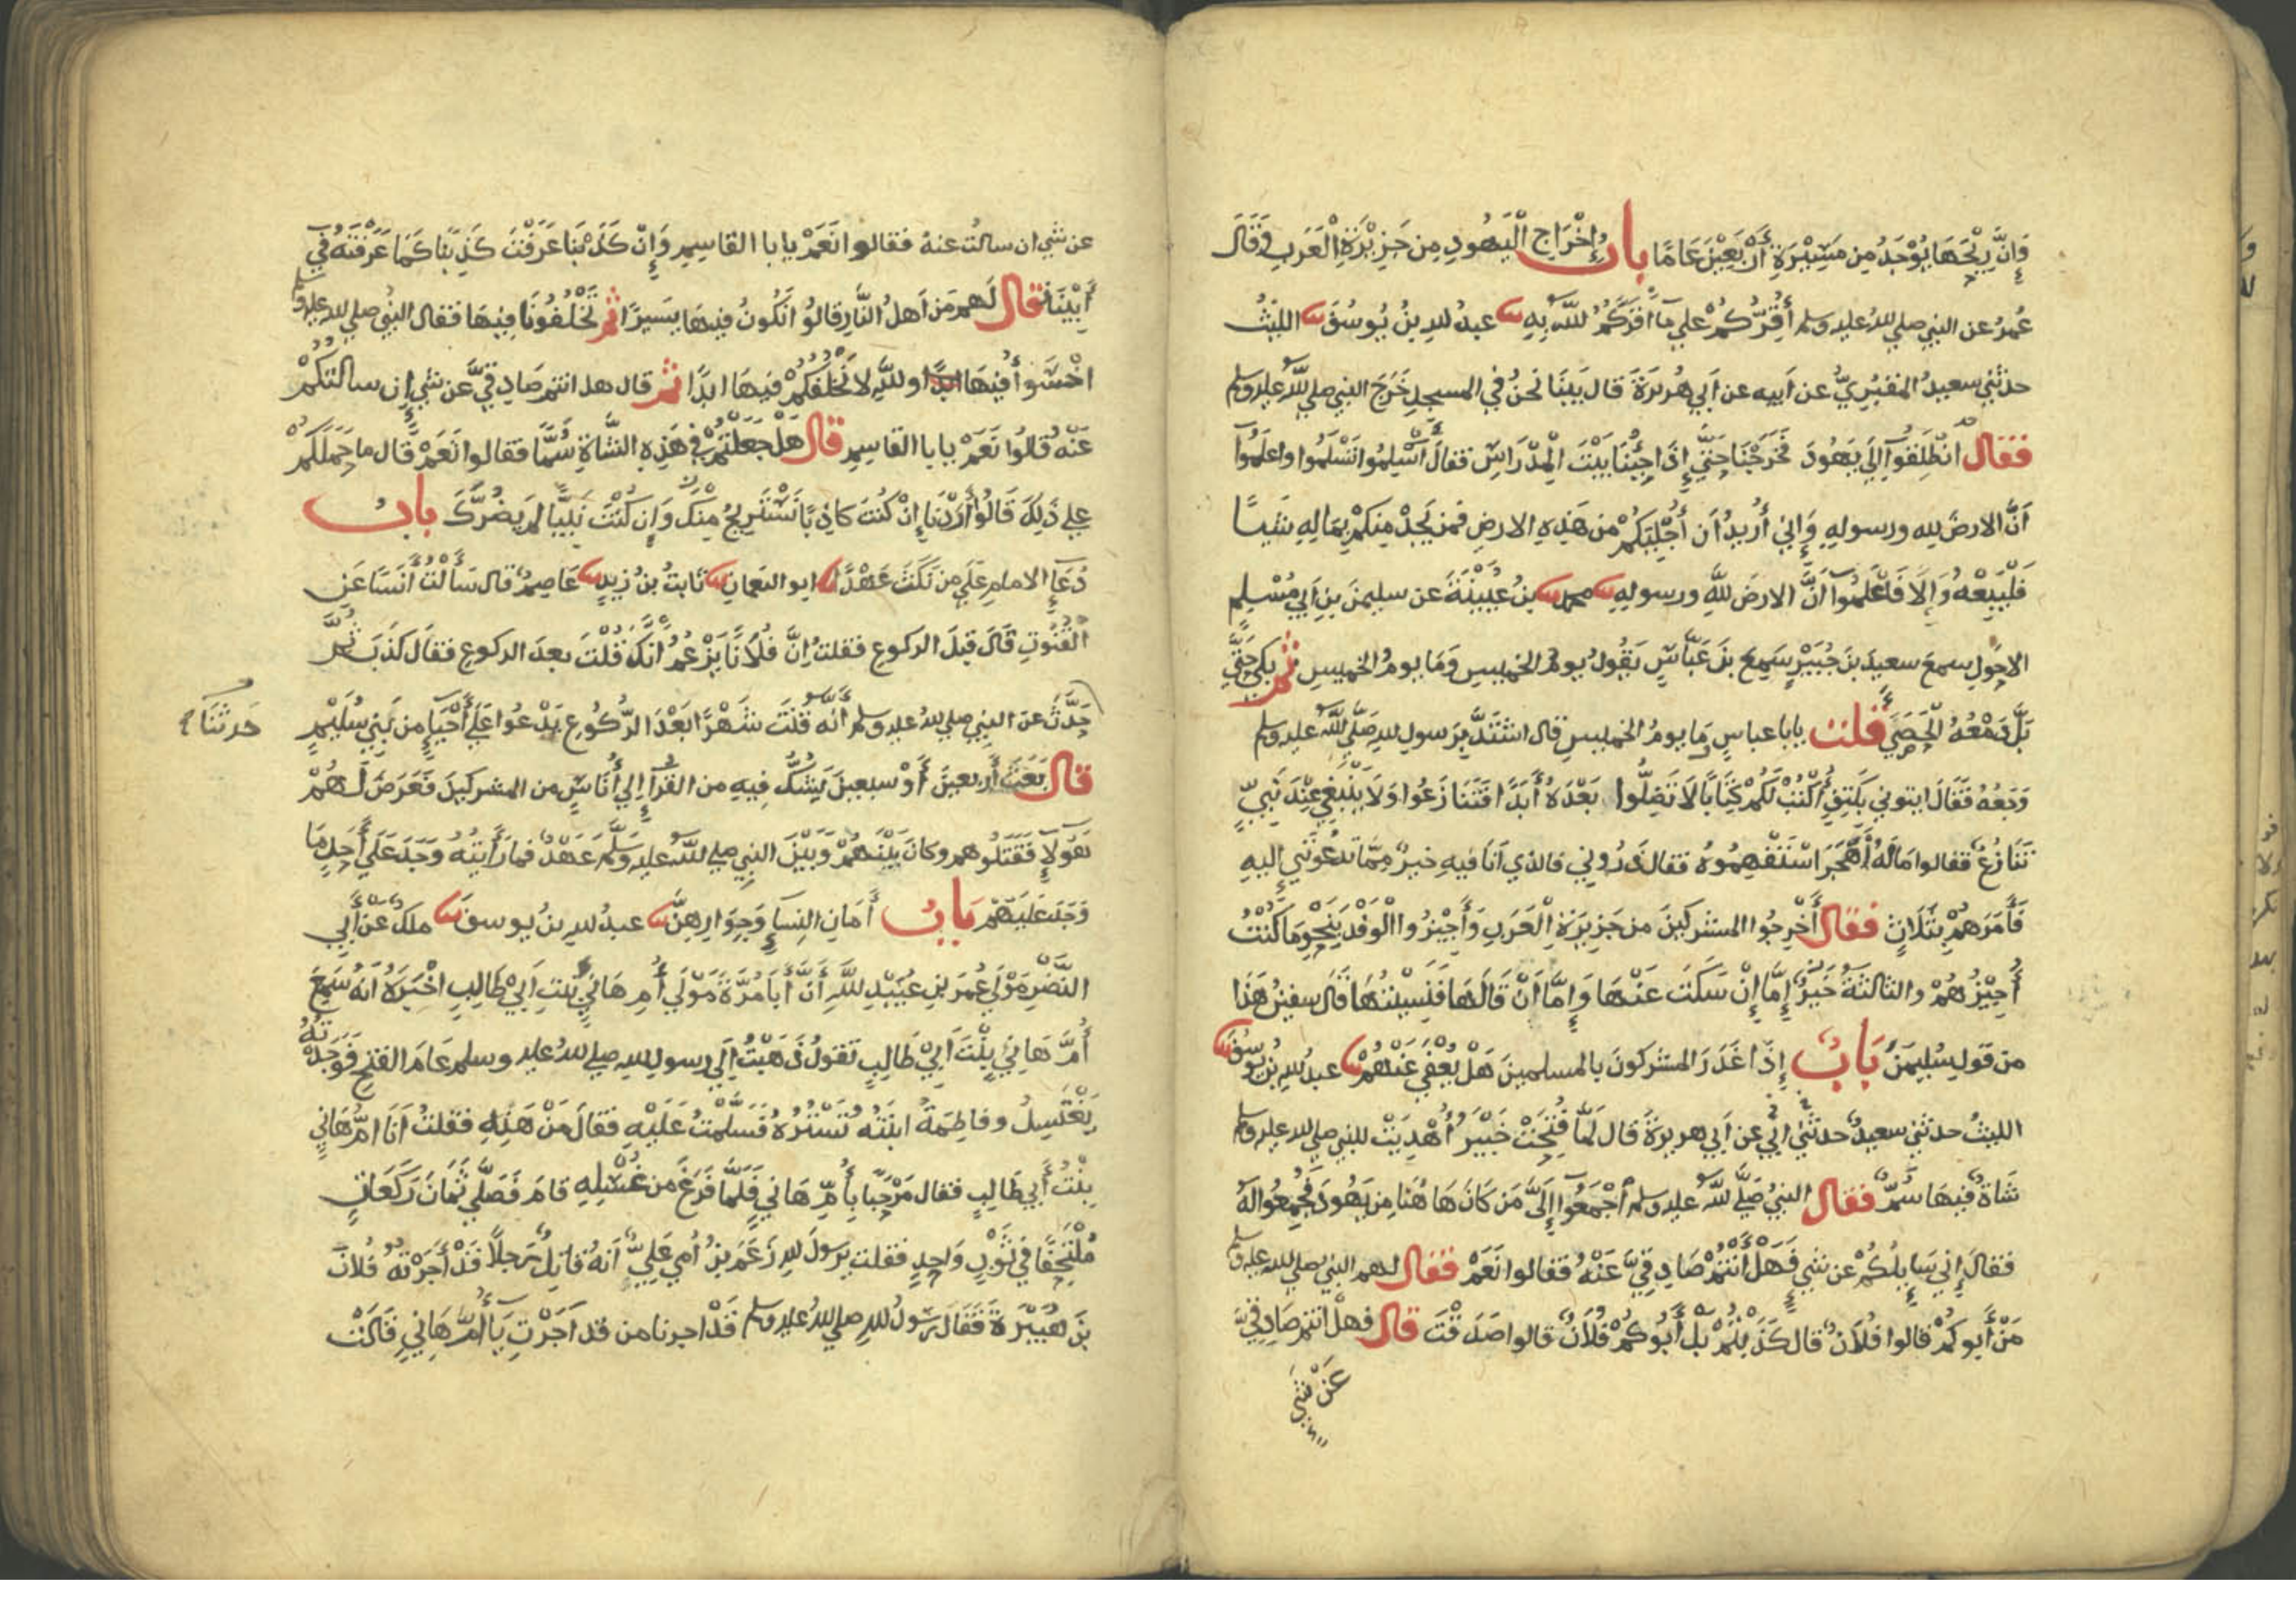 وَإِنَّ رِيْحَهَا يُوْجَدُ مِن مَسِيْرَةِ أَرْبَعِيْنَ عَامًا باب إِخْرَاجِ الْيَهُودِ مِن جَزِيْرَةِ الْعَرَبِ وَقَالَ
عُمَرُ عن النبي صلي الله عليه وسلم أُقِرُّكُمْ علي ما أَقَرَّكُمُ اللهُ بِهِ ثنا عبدُ الله بنُ يُوسُفَ ثنا الليثُ
حدثني سعيدُ المقبُرِيُّ عن أَبيهِ عن أَبي هُرَيْرَةَ قال بَينَا نحنُ في المسجدِ خَرَجَ النبي صلي الله عليه وسلم
فقال انْطَلِقُوآ إِلَي يَهُودَ فَخَرَجْنَا حَتَّي إِذَا جِئْنَا بَيْتَ الْمِدْرَاسِ فقالَ أَسْلِمُوا تَسْلَمُوا واعلَمُوآ
أَنَّ الارضَ لِلهِ ورسولِهِ وَإِنِي أُرِيدُ أَن أُجْلِيَكُمْ من هَذِهِ الارضِ فمن يَجِدْ مِنكمْ بِمَالِهِ شَيـًٔا
فَلْيَبِعْهُ وَإِلَّا فَاعْلَمُوآ أَنَّ الارضَ للهِ ورسولِهِ ثنا محمد ثنا بنُ عُيَيْنَةَ عن سليمنَ بنِ أَبي مُسْلِمٍ
الاحوَلِ سمعَ سعيدَ بنَ جُبَيْرٍ سَمِعَ بنَ عَبَّاسٍ يَقُولُ يومُ الخميسِ وَمَا يومُ الخميسِ ثم بكي حَتَّي
بَلَّ دَمْعُهُ الْحَصَي قلت يابا عباسٍ مَا يومُ الخميسِ قال اشتَدَّ بِرَسولِ اللهِ صَلَّي اللهُ عليه وسلم
وَجَعُهُ فَقَالَ ايتوني بِكَتِفٍ أَكْتُبْ لَكُمْ كِتَابًا لَا تَضِلُّوا بَعْدَهُ أَبَدًا فَتَنَازَعُوا وَلَا يَنْبَغِي عِنْدَ نَبِيٍّ
تَنَازُعٌ فقالوا مَالَهُ أَهَجَرَ اسْتَفْهِمُوهُ فقال ذَرُوني فالذي أَنَا فيهِ خيرٌ مِمَّا تدعُونَنِي إِليهِ
فَأَمَرَهُمْ بِثَلَاثٍ فقال أَخْرِجُوا المشركينَ من جَزِيرَةِ الْعَرَبِ وَأَجِيْزُوا الْوَفْدَ بِنَحْوِ مَا كُنْتُ
أُجِيْزُهُمْ والثالثةُ خَيرٌ إِمَّا إِنْ سَكَتَ عَنْهَا وَإِمَّا أَنْ قَالَهَا فَنَسِيْتُهَا قَالَ سفينُ هَذَا
من قولِ سُليمنَ بَابٌ إِذَا غَدَرَ المشركونَ بالمسلمينَ هَلْ يُعْفَي عَنْهُمْ ثنا عبدُ الله بنُ يوسُفَ ثنا
الليثُ حدثني سعيدٌ حدثني أبي عن أَبي هريرةَ قال لَمَّا فُتِحَتْ خَيْبَرُ أُهْدِيَتْ للنبي صلي الله عليه وسلم
شَاةٌ فيهَا سُمٌّ فقال النبيُّ صَلَّي الله عليه وسلم اجْمَعُوآ إِلَيَّ مَن كَانَ هَا هُنَا مِن يَهُودَ فَجُمِعُوا لَهُ
فقالَ إِني سَايِلُكُمْ عن شَيءٍ فَهَلْ أَنْتُمْ صَادِقِيَّ عَنْهُ فقالوا نَعَمْ فقال لهم النبي صلي الله عليه وسلم
مَنْ أَبوكُمْ قالوا فُلَانٌ قال كَذَبْتُمْ بَلْ أَبُوكُمْ فُلَانٌ قالوا صَدَقْتَ قال فهل انتم صَادِقِيَّ
عَنْ شَيءٍ
عن شيءٍ ان سالتُ عنهُ فقالوا نَعَمْ يابا القاسِمِ وَإِنْ كَذَبْنَا عَرَفْتَ كَذِبَنَا كَمَا عَرَفْتَهُ في
أَبِيْنَا فقال لَهم مَن اَهلُ النَّارِ قالُوا نَكُونُ فيهَا يَسِيرًا ثم تَخْلُفُونَا فِيهَا فقال النبي صلي الله عليه وسلم
اخْسَوا فيهَا ابدًا والله لا نَخْلُفُكُمْ فيهَا ابدًا ثم قال هل انتم صَادِقِيَّ عَن شَيءٍ إِن سالتكُمْ
عَنْهُ قالُوا نَعَمْ يابا القاسِمِ قال هَلْ جَعَلْتُمْ في هَذِهِ الشَّاةِ سُمًّا فقالوا نَعَمْ قَال ما حَمَلَكُمْ
علي ذَلِكَ قَالُوا أَرَدْنَا إِنْ كُنتَ كاذِبًا نَسْتَرِيحُ مِنْكَ وَإِن كُنْتَ نَبِيًّا لم يَضُرَّكَ باب
دُعَآءِ الامامِ عَلَي مَن نَكَثَ عَهْدًا ثنا ابو النعمانِ ثنا ثابتُ بنُ زيدٍ ثنا عَاصِمٌ قال سَأَلْتُ أَنَسًا عَنِ
الْقُنُوتِ قَالَ قبلَ الركوعِ فقلتُ إِنَّ فُلَانًا يَزْعُمُ أَنَّكَ قُلْتَ بعدَ الركوعِ فقال كَذَبَ ثُمَّ
حَدَّثَ عَنِ النبي صلي الله عليه وسلم أَنَّهُ قَنَتَ شَهْرًا بَعْدَ الرُّكُوعِ يَدْعُوا عَلَي أَحْيَآءٍ مِن بَنِي سُلَيْمٍ
حَدثنَا
قال بَعَثَ أَربعينَ أَوْ سبعينَ يَشُكُّ فِيهِ من القُرَّآءِ إِلي أُنَاسٍ من المشركينَ فَعَرَضَ لَهُمْ
هَؤلَآءِ فَقَتَلُوهم وكانَ بَيْنَهُمْ وَبَيْنَ النبي صلي الله عليه وَسَلَّمَ عَهْدٌ فمارَأَيتُهُ وَجَدَ عَلَي أَحَدٍ مَا
وَجَدَ عَلَيهمْ بَابُ أَمَانِ النِسَآءِ وَجِوَارِهِنَّ ثنا عبدُ الله بنُ يوسفَ ثنا ملكٌ عَنْ أَبِي
النَّضْرِ مَوْلَي عُمَرَ بنِ عُبَيْدِ اللهِ أَنَّ أَبَا مُرَّةَ مَوْلَي أُمِ هَانِيءٍ بنتِ اَبي طَالِبٍ اخْبَرَهُ انَهُ سَمِعَ
أُمَّ هَانِئٍ بِنْتَ اَبيْ طَالِبٍ تَقولُ ذَهَبْتُ إِلَي رسولِ الله صلي الله عليه وسلم عَامَ الفتحِ فوَجَدْتُهُ
يَغْتَسِلُ وفاطِمَةُ ابنَتُهُ تَسْتُرُهُ فَسَلَّمْتُ عَلَيْهِ فقالَ مَنْ هَذِهِ فقلتُ أَنَا أمُّ هَانِيءٍ
بِنْتُ أَبي طَالِبٍ فقال مَرْحَبًا بِأُمِّ هَاني فَلَمَّا فَرَغَ من غُسْلِهِ قامَ فَصَلَّي ثَمَانَ رَكَعَاتٍ
مُلْتَحِفًا في ثَوْبٍ وَاحِدٍ فقلت يرَسولَ الله زَعَمَ بنُ أُمي عَلِيٌّ أَنهُ قاتِلٌ رَجلًا قَدْ أَجَرْتهُ فُلانَ
بنَ هُبَيْرَةَ فَقَالَ رَسُولُ الله صلي الله عليه وسلم قَدْ اجرنا من قد آجَرْتِ يَا أُمَّ هَانِيءٍ قَالَتْ